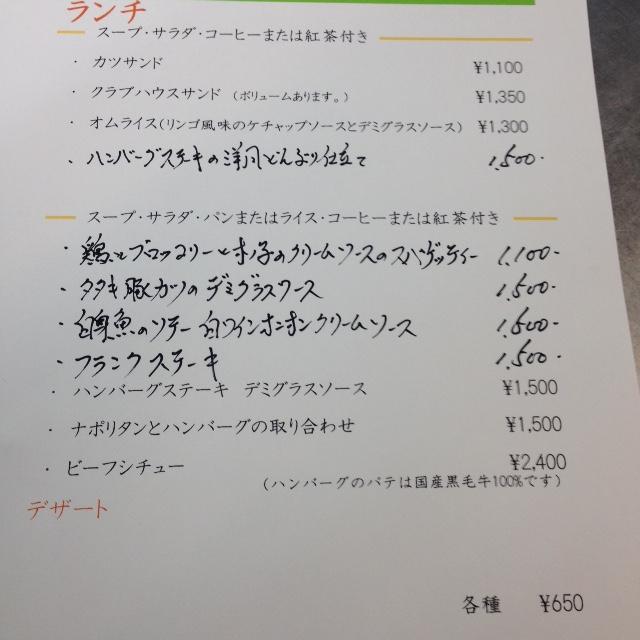 ランチ
スープ・サラダ・コーヒーまたは紅茶付き
・ カツサンド ¥1,100
・ クラブハウスサンド (ボリュームあります。) ¥1,350
・ オムライス(リンゴ風味のケチャップソースとデミグラスソース) ¥1,300
・ ハンバーグステーキの洋風どんぶり仕立て 1,500-
スープ・サラダ・パンまたはライス・コーヒーまたは紅茶付き
・ 鶏とブロッコリーと木ノ子のクリームソースのスパゲッティー 1,100-
・ タタキ豚カツのデミグラスソース 1,500-
・ 白身魚のソテー 白ワインオニオンクリームソース 1,500-
・ フランクステーキ 1,500-
・ ハンバーグステーキ デミグラスソース ¥1,500
・ ナポリタンとハンバーグの取り合わせ ¥1,500
・ ビーフシチュー ¥2,400
(ハンバーグのパテは国産黒毛牛100%です)
デザート
各種 ¥650